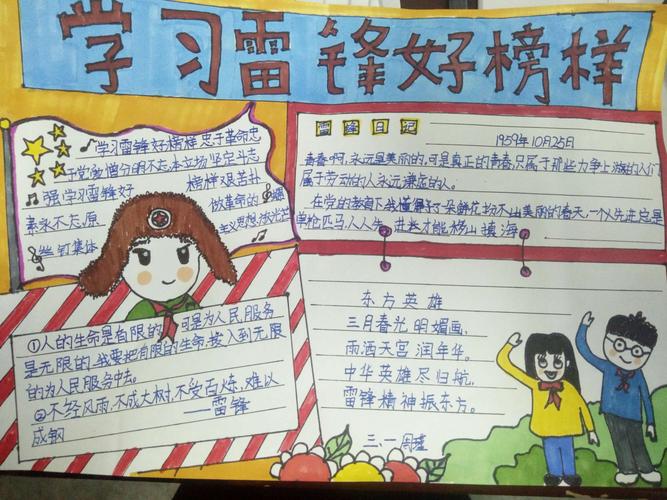 学习雷锋好榜样
学习雷锋好榜样忠于革命忠
于党爱憎分明不忘本立场坚定斗志
强学习雷锋好 榜样艰苦朴
素永不忘愿 做革命的
丝钉集体 主义思想放光芒
①人的生命是有限的,可是为人民服务
是无限的,我要把有限的生命,投入到无限
的为人民服务中去。
②不经风雨,不成大树,不受百炼,难以
成钢 ——雷锋
雷锋日记
1959年10月25日
青春啊,永远是美丽的,可是真正的青春只属于那些力争上游的人们
属于劳动的人永远谦虚的人。
在党的教育下我懂得了朵鲜花 不 美丽的春天,一人先进 是
单枪匹马,人人先进才能移山填海
东方英雄
三月春光明媚画,
雨洒天宫润年华。
中华英雄尽归航,
雷锋精神振东方。
三、一 周